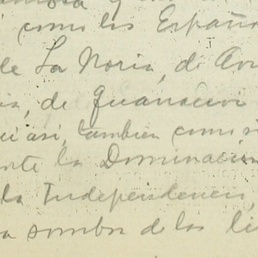 como los Españo
de La Noria, de
de Guanaceví
así, también como
la Dominación
la Independencia,
sombra de las